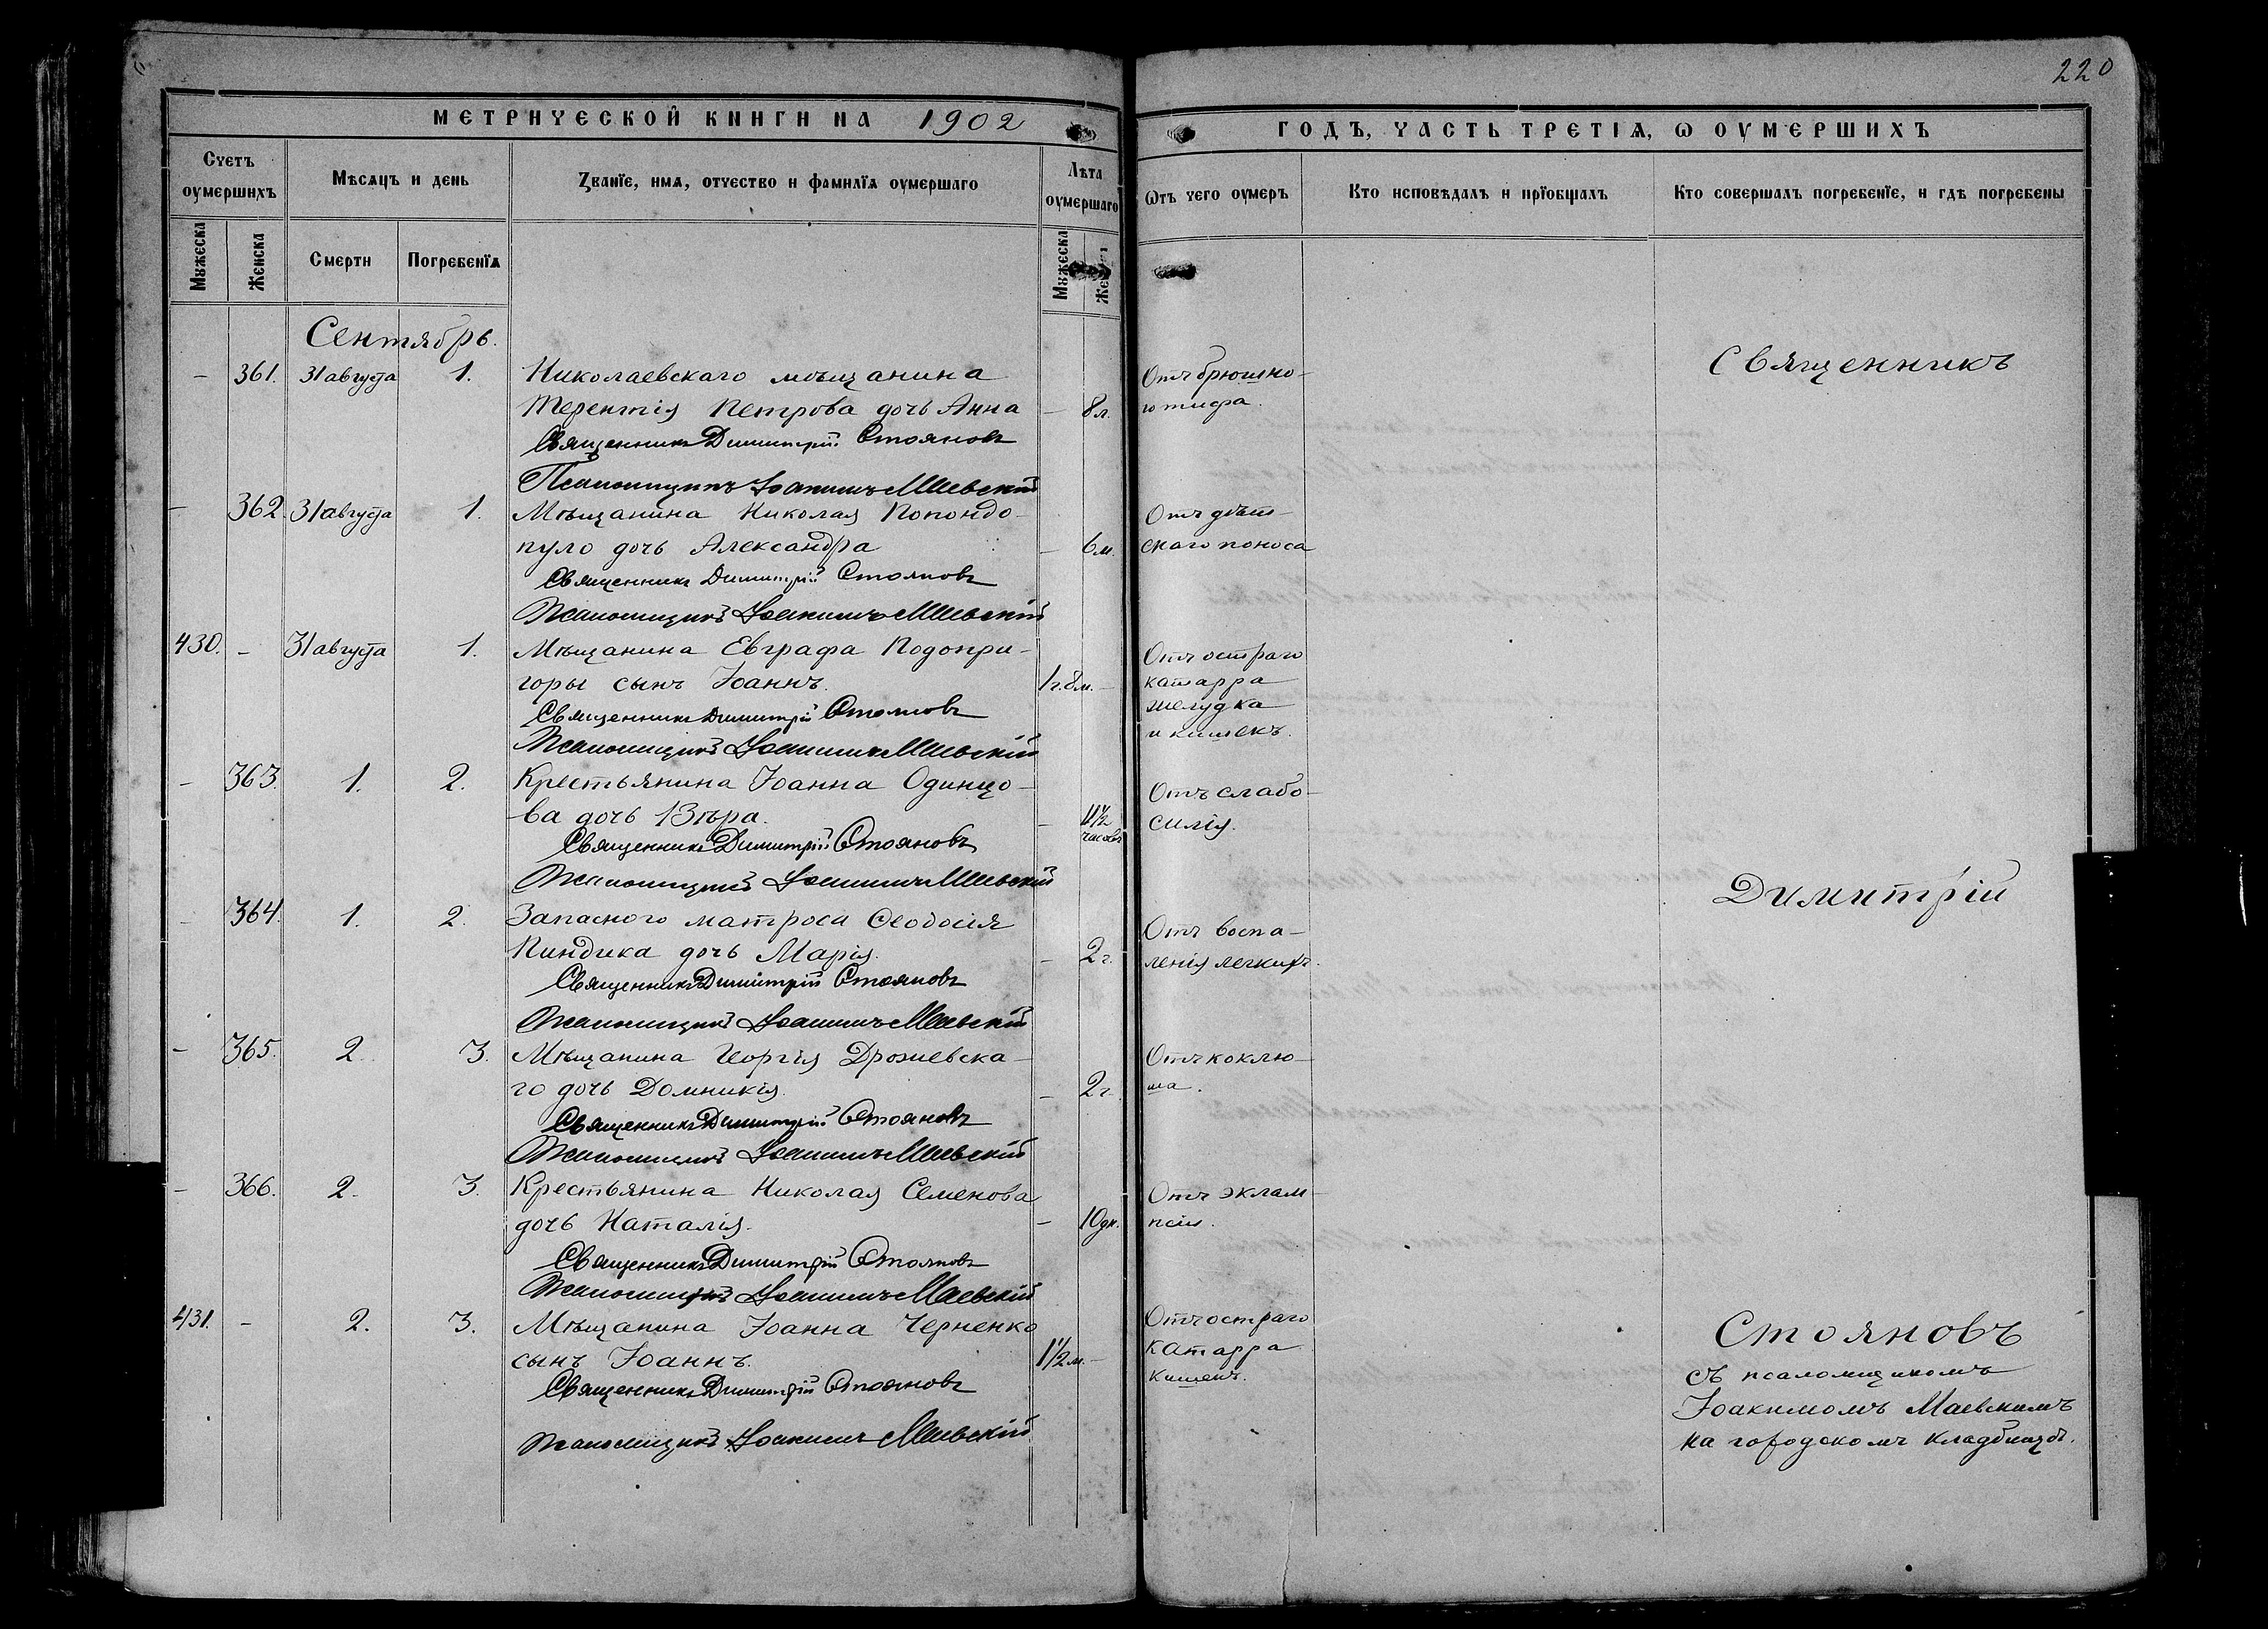 220
МЕТРИЧЕСКОЙ КНИГИ НА 1902
ГОДЪ, ЧАСТЬ ТРЕТІѦ, Ѡ ОУМЕРШИХЪ
Счетъ оумершихъ
Мѣсѧцъ и день
Званїе, имѧ, отчество и фамилїѧ оумершаго
Лѣта оумершаго
Ѿтъ чего оумеръ
Кто исповѣдалъ и прїобщалъ
Кто совершалъ погребенїе, и гдѣ погребены
Мꙋжеска
Женска
Смерти
Погребенїѧ
Мꙋжеска
Же
Сентябрь.
– 361. 31 августа 1. Николаевскаго мѣщанина
Терентія Петрова дочь Анна – 8 л.
Отъ брюшно-
го тифа.
Священникъ Димитрій Стояновъ
Псаломщикъ Іоакимъ Маевскій
– 362. 31 августа 1. Мѣщанина Николая Попондо-
пуло дочь Александра – 6 м.
Отъ дѣт-
скаго поноса
Священникъ Димитрій Стояновъ
Псаломщикъ Іоакимъ Маевскій
430. – 31 августа 1. Мѣщанина Евграфа Подопри-
горы сынъ Іоаннъ. 1 г. 8 м. –
Отъ остраго
катарра
желудка
и кишекъ.
Священникъ Димитрій Стояновъ
Псаломщикъ Іоакимъ Маевскій
– 363. 1. 2. Крестьянина Іоанна Одинцо-
ва дочь Вѣра. – 11½ часовъ
Отъ слабо-
силія.
Священникъ Димитрій Стояновъ
Псаломщикъ Іоакимъ Маевскій
– 364. 1. 2. Запаснаго матроса Ѳеодосія
Пиндика дочь Марія. – 2 г.
Отъ воспа-
ленія легкихъ.
Священникъ Димитрій Стояновъ
Псаломщикъ Іоакимъ Маевскій
– 365. 2. 3. Мѣщанина Георгія Дрожевска-
го дочь Домникія. – 2 г.
Отъ коклю-
ша.
Священникъ Димитрій Стояновъ
Псаломщикъ Іоакимъ Маевскій
– 366. 2. 3. Крестьянина Николая Семенова
дочь Наталія. – 10 дн.
Отъ эклам-
псіи.
Священникъ Димитрій Стояновъ
Псаломщикъ Іоакимъ Маевскій
431. – 2. 3. Мѣщанина Іоанна Черненко
сынъ Іоаннъ. 1½ м. –
Отъ остраго
катарра
кишекъ.
Священникъ Димитрій Стояновъ
Псаломщикъ Іоакимъ Маевскій
Священникъ
Димитрій
Стояновъ
съ псаломщикомъ
Іоакимомъ Маевскимъ
на городскомъ кладбищѣ.